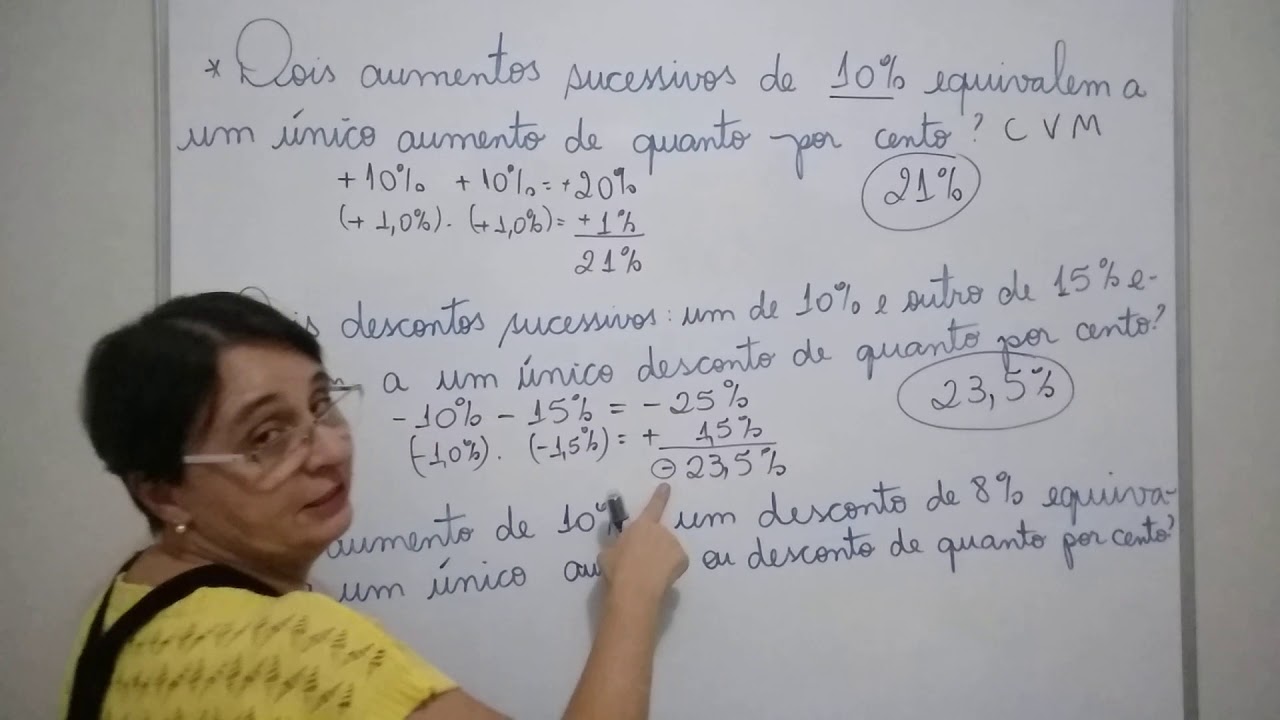 * Dois aumentos sucessivos de 10% equivalem a
um único aumento de quanto por cento? CVM
+10% +10% = +20%
21%
(+1,0%). (+1,0%) = +1%
21%
descontos sucessivos: um de 10% e outro de 15% e-
a um único desconto de quanto por cento?
-10% - 15% = -25%
23,5%
(-1,0%). (-1,5%) = + 1,5%
-23,5%
aumento de 10% um desconto de 8% equiva-
um único au ou desconto de quanto por cento?